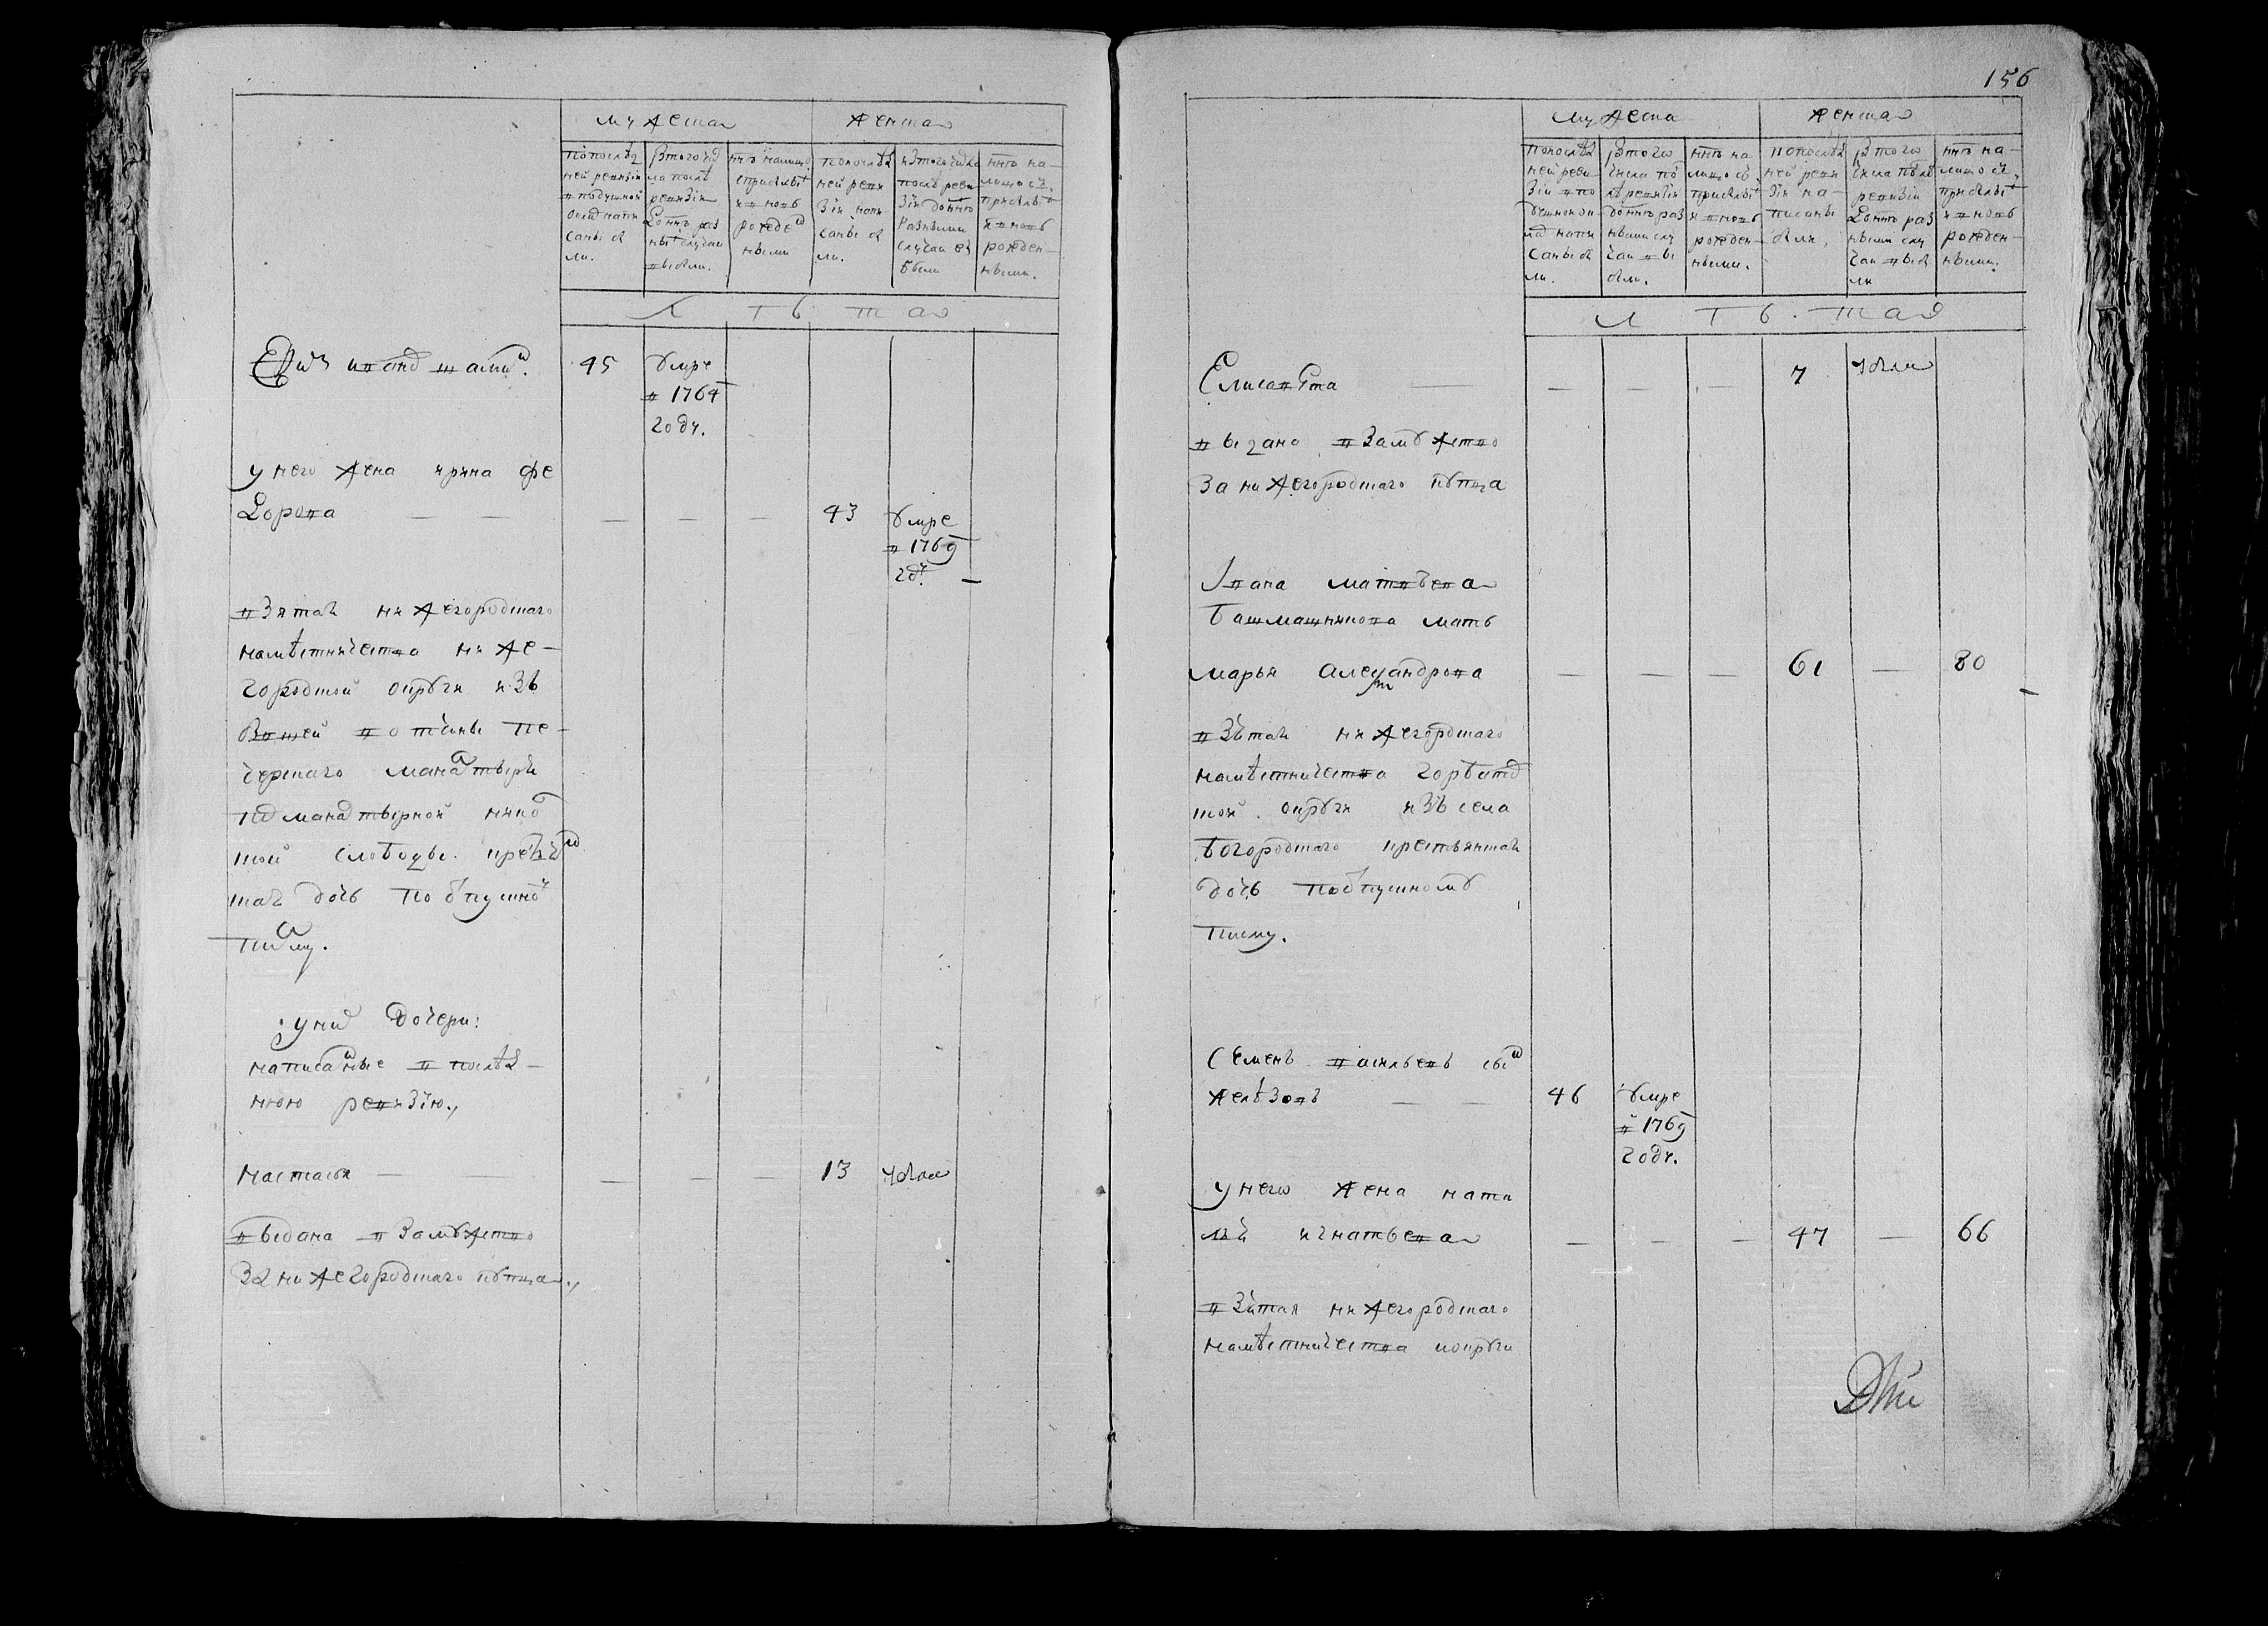 мужеска
женска
попослѣд
ней ревизіи
в подушной
окладъ напи
саны бы
ли.
Ізтогочис
ла послѣ
ревизіи
до ннѣ раз
ными случаи
выбыли.
ннѣ налицо
сприбылы
и вновь
рожден
ными
попослѣд
ней реви
зіи напи
саны бы
ли.
изтогочисла
послѣ реви
зіи до ннѣ
разными
случаи вы
были
ннѣ на
лицо съ
прибылы
и вновь
рожден
ными.
лѣта
45
умре
в 1764
году.
у него жена ирина фе
дорова — —
— — — 43
умре
в 1769
гдꙋ. —
взятая нижегородскаго
намѣстничества ниже
городской округи изъ
бывшей вотчины пе
черскаго манастыря
подманастырной
слободы. крестьян
ская дочь по отпускно
письму.
у них дочери:
написанные в послѣд
нюю ревизію.,
настасья — —
— — — 13 убыли
выдана взамужство
за нижегородскаго купца.,
156
мужеска
женска
попослѣд
ней реви
зіи в по
душнои ок
лад напи
саны бы
ли.
Ізтого
числа по
слѣ ревизіи
до ннѣ раз
ными слу
чаи вы
были.
ннѣ на
лицо съ
прибылы
и вновь
рожден
ными.
попослѣд
ней реви
зіи на
писаны
были,
Ізтого
числа послѣ
ревизіи
до ннѣ раз
ными слу
чаи выбы
ли
ннѣ на
лицо съ
прибылы
и вновь
рожден
ными.
лѣта
Елисавета — — — — 7 убыли
выдано взамужство
за нижегородскаго купца
Івана матвѣева
башмашникова мать
марья александрова — — — 61 — 80
взятая нижегородскаго
намѣстничества горбатов
ской округи изъ села
богородскаго крестьянская
дочь поотпускному
писму.
Семенъ васильевъ сынъ
желѣзовъ — — 46
умре
в 1769
году.
у него жена ната
лья игнатьева — — — 47 — 66
взятая нижегородскаго
намѣстничества иокруги